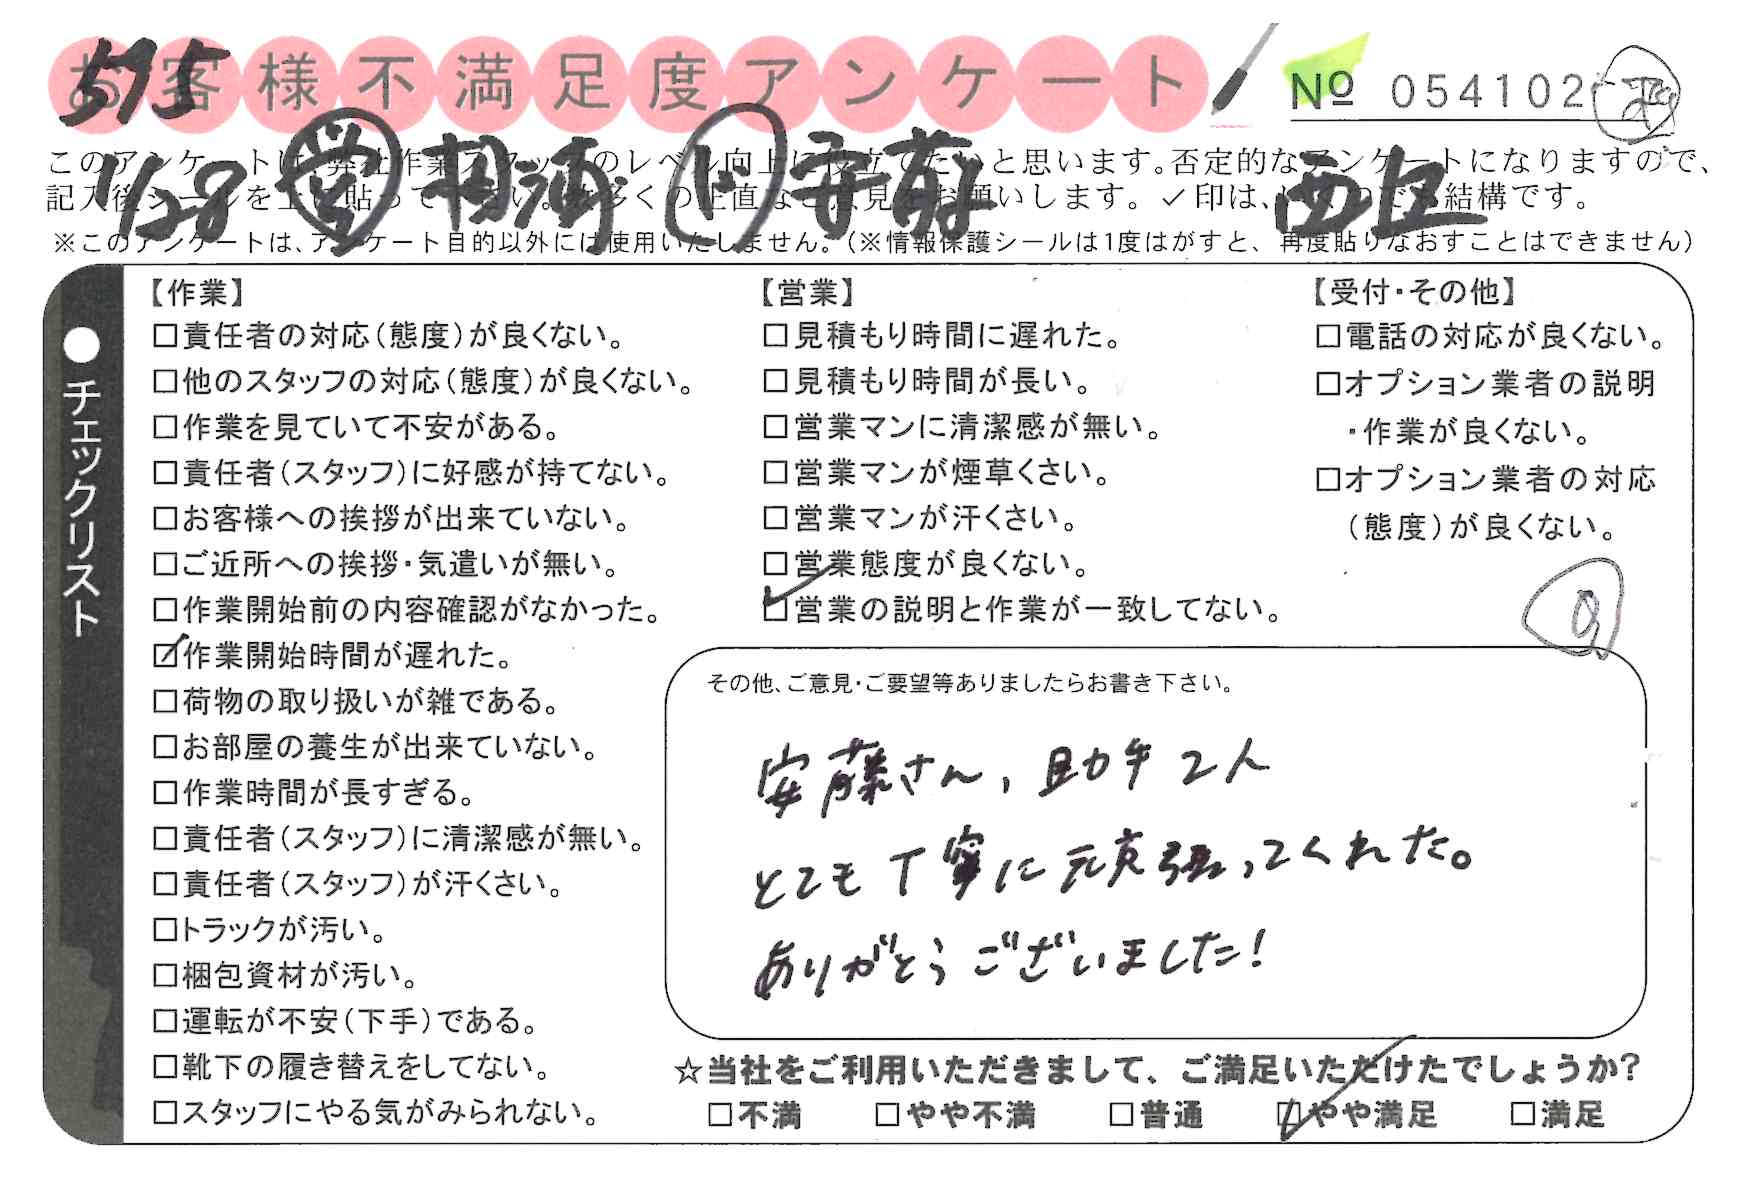 お客様不満足度アンケート
575
No 054102
1/28 営 相浦 ド 安藤 西丘
このアンケートは、弊社作業スタッフのレベル向上に役立てたいと思います。否定的なアンケートになりますので、
記入後シールを上に貼って下さい。数多くの正直なご意見をお願いします。✓印は、いくつでも結構です。
※このアンケートは、アンケート目的以外には使用いたしません。(※情報保護シールは1度はがすと、再度貼りなおすことはできません)
●チェックリスト
【作業】
□責任者の対応(態度)が良くない。
□他のスタッフの対応(態度)が良くない。
□作業を見ていて不安がある。
□責任者(スタッフ)に好感が持てない。
□お客様への挨拶が出来ていない。
□ご近所への挨拶・気遣いが無い。
□作業開始前の内容確認がなかった。
☑作業開始時間が遅れた。
□荷物の取り扱いが雑である。
□お部屋の養生が出来ていない。
□作業時間が長すぎる。
□責任者(スタッフ)に清潔感が無い。
□責任者(スタッフ)が汗くさい。
□トラックが汚い。
□梱包資材が汚い。
□運転が不安(下手)である。
□靴下の履き替えをしてない。
□スタッフにやる気がみられない。
【営業】
□見積もり時間に遅れた。
□見積もり時間が長い。
□営業マンに清潔感が無い。
□営業マンが煙草くさい。
□営業マンが汗くさい。
□営業態度が良くない。
☑営業の説明と作業が一致してない。
【受付・その他】
□電話の対応が良くない。
□オプション業者の説明
・作業が良くない。
□オプション業者の対応
(態度)が良くない。
その他、ご意見・ご要望等ありましたらお書き下さい。
安藤さん、助手2人
とても丁寧に頑張ってくれた。
ありがとうございました!
☆当社をご利用いただきまして、ご満足いただけたでしょうか?
□不満 □やや不満 □普通 ☑やや満足 □満足